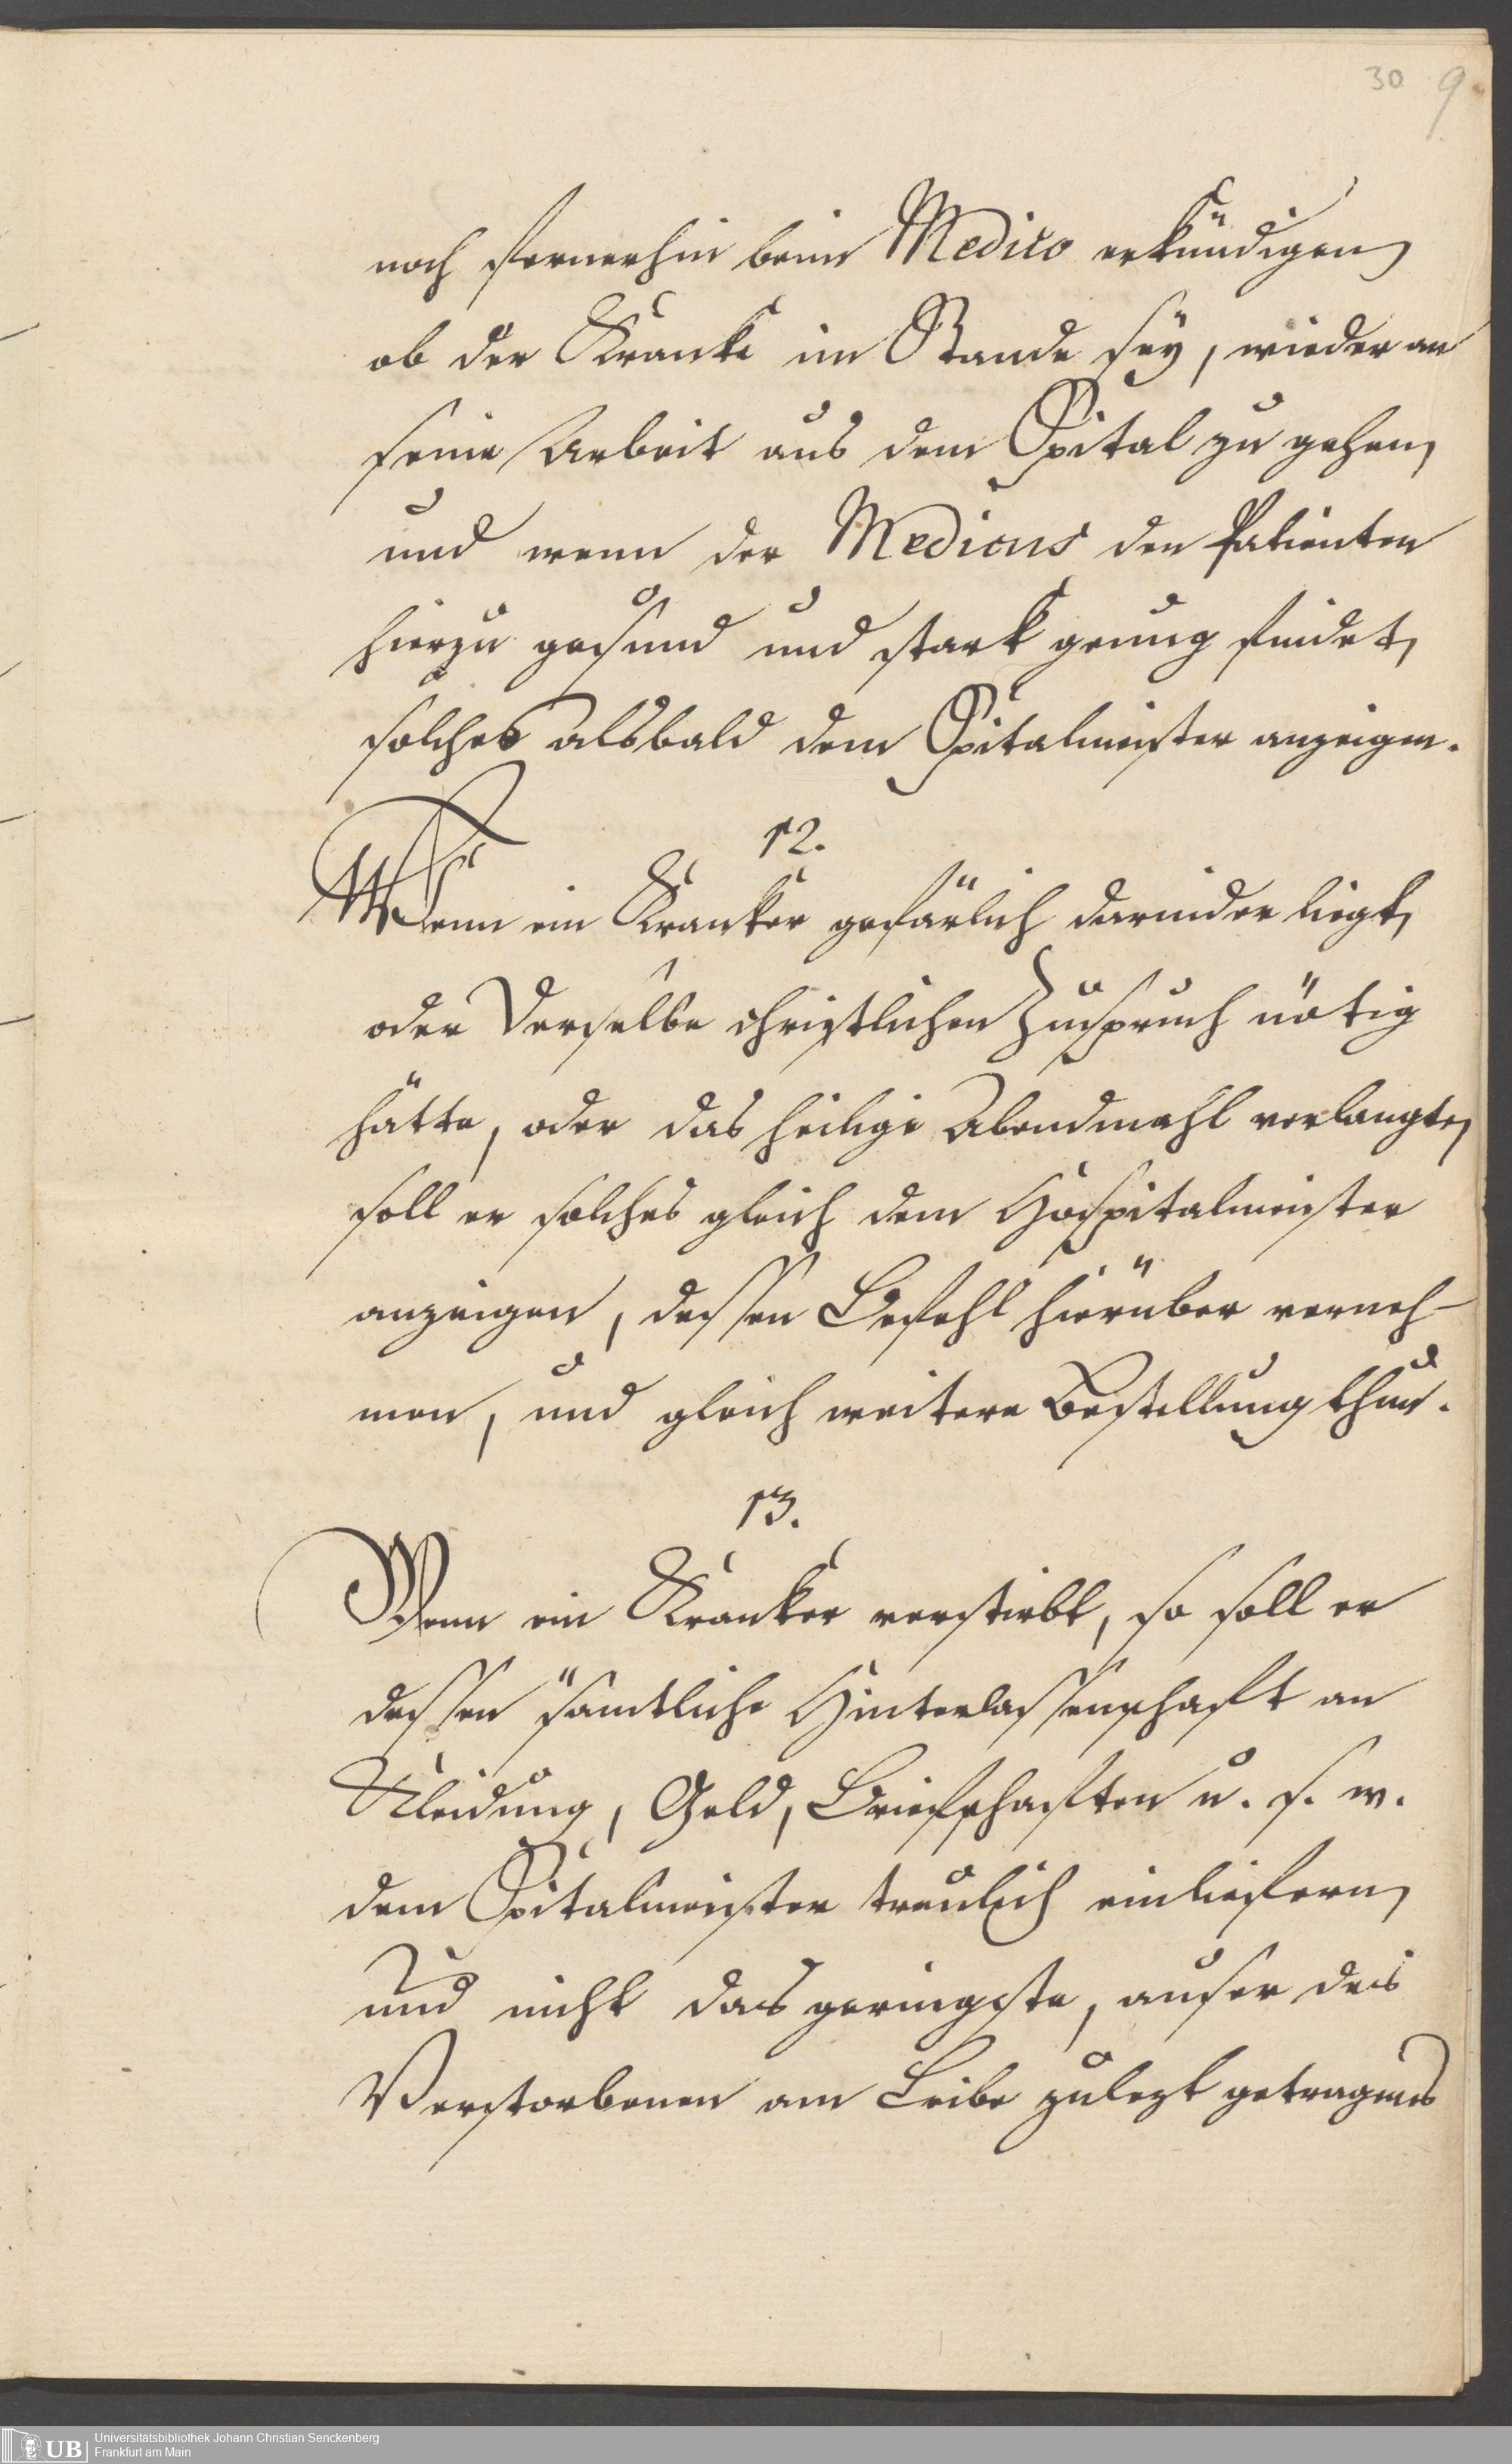 30 9.
noch fernerhin beim Medico erkündigen,
ob der Kranke im Stande sey, wieder an
seine Arbeit aus dem Spital zu gehen,
und wenn der Medicus den Patienten
hierzu gesund und stark genug findet,
solches alsbald dem Spitalmeister anzeigen.
12.
Wenn ein Kranker gefärlich darnider liegt,
oder derselbe christlichen Zuspruch nötig
hätte, oder das heilige Abendmahl verlangte,
soll er solches gleich dem Hospitalmeister
anzeigen, dessen Befehl hierüber verneh-
men, und gleich weitere Bestellung thun.
13.
Wenn ein Kranker verstirbt, so soll er
dessen sämtliche Hinterlassenschaft an
Kleidung, Geld, Briefschaften u. s. w.
dem Spitalmeister treulich einliefern,
und nicht das geringste, auser des
Verstorbenen am Leibe zulezt getragenes
UB
Universitätsbibliothek Johann Christian Senckenberg
Frankfurt am Main